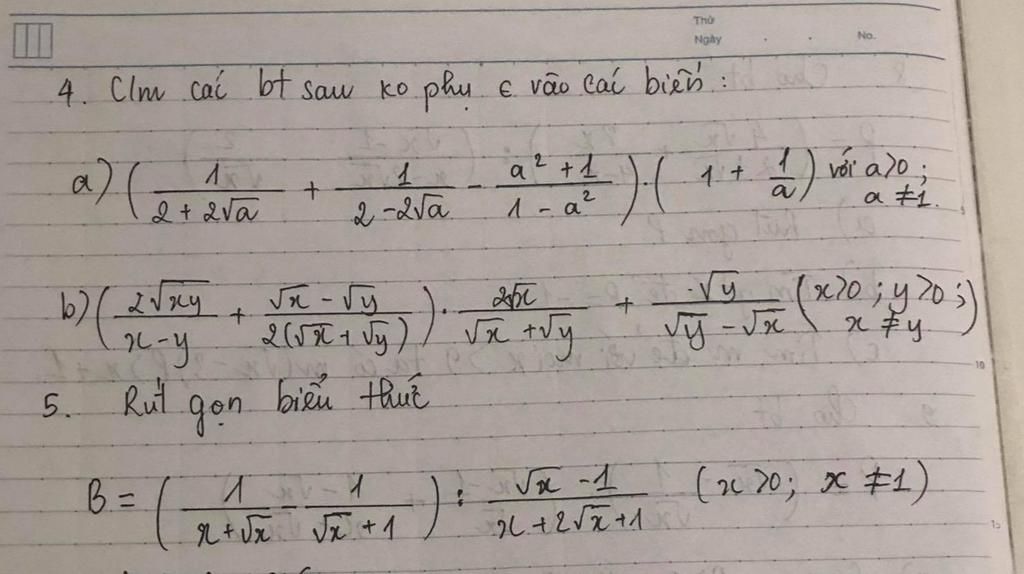 Thứ
Ngày . . No.
4. C/m các bt sau ko phụ ∈ vào các biến :
a) ( 1/(2 + 2√a) + 1/(2 - 2√a) - (a² + 1)/(1 - a²) ) . ( 1 + 1/a ) với a>0 ; a ≠ 1.
b) ( 2√xy/(x - y) + (√x - √y)/(2(√x + √y)) ) . 2√x/(√x + √y) + √y/(√y - √x) ( x>0 ; y>0 ; x ≠ y )
5. Rút gọn biểu thức
B = ( 1/(x + √x) - 1/(√x + 1) ) : (√x - 1)/(x + 2√x + 1) ( x>0 ; x ≠ 1 )